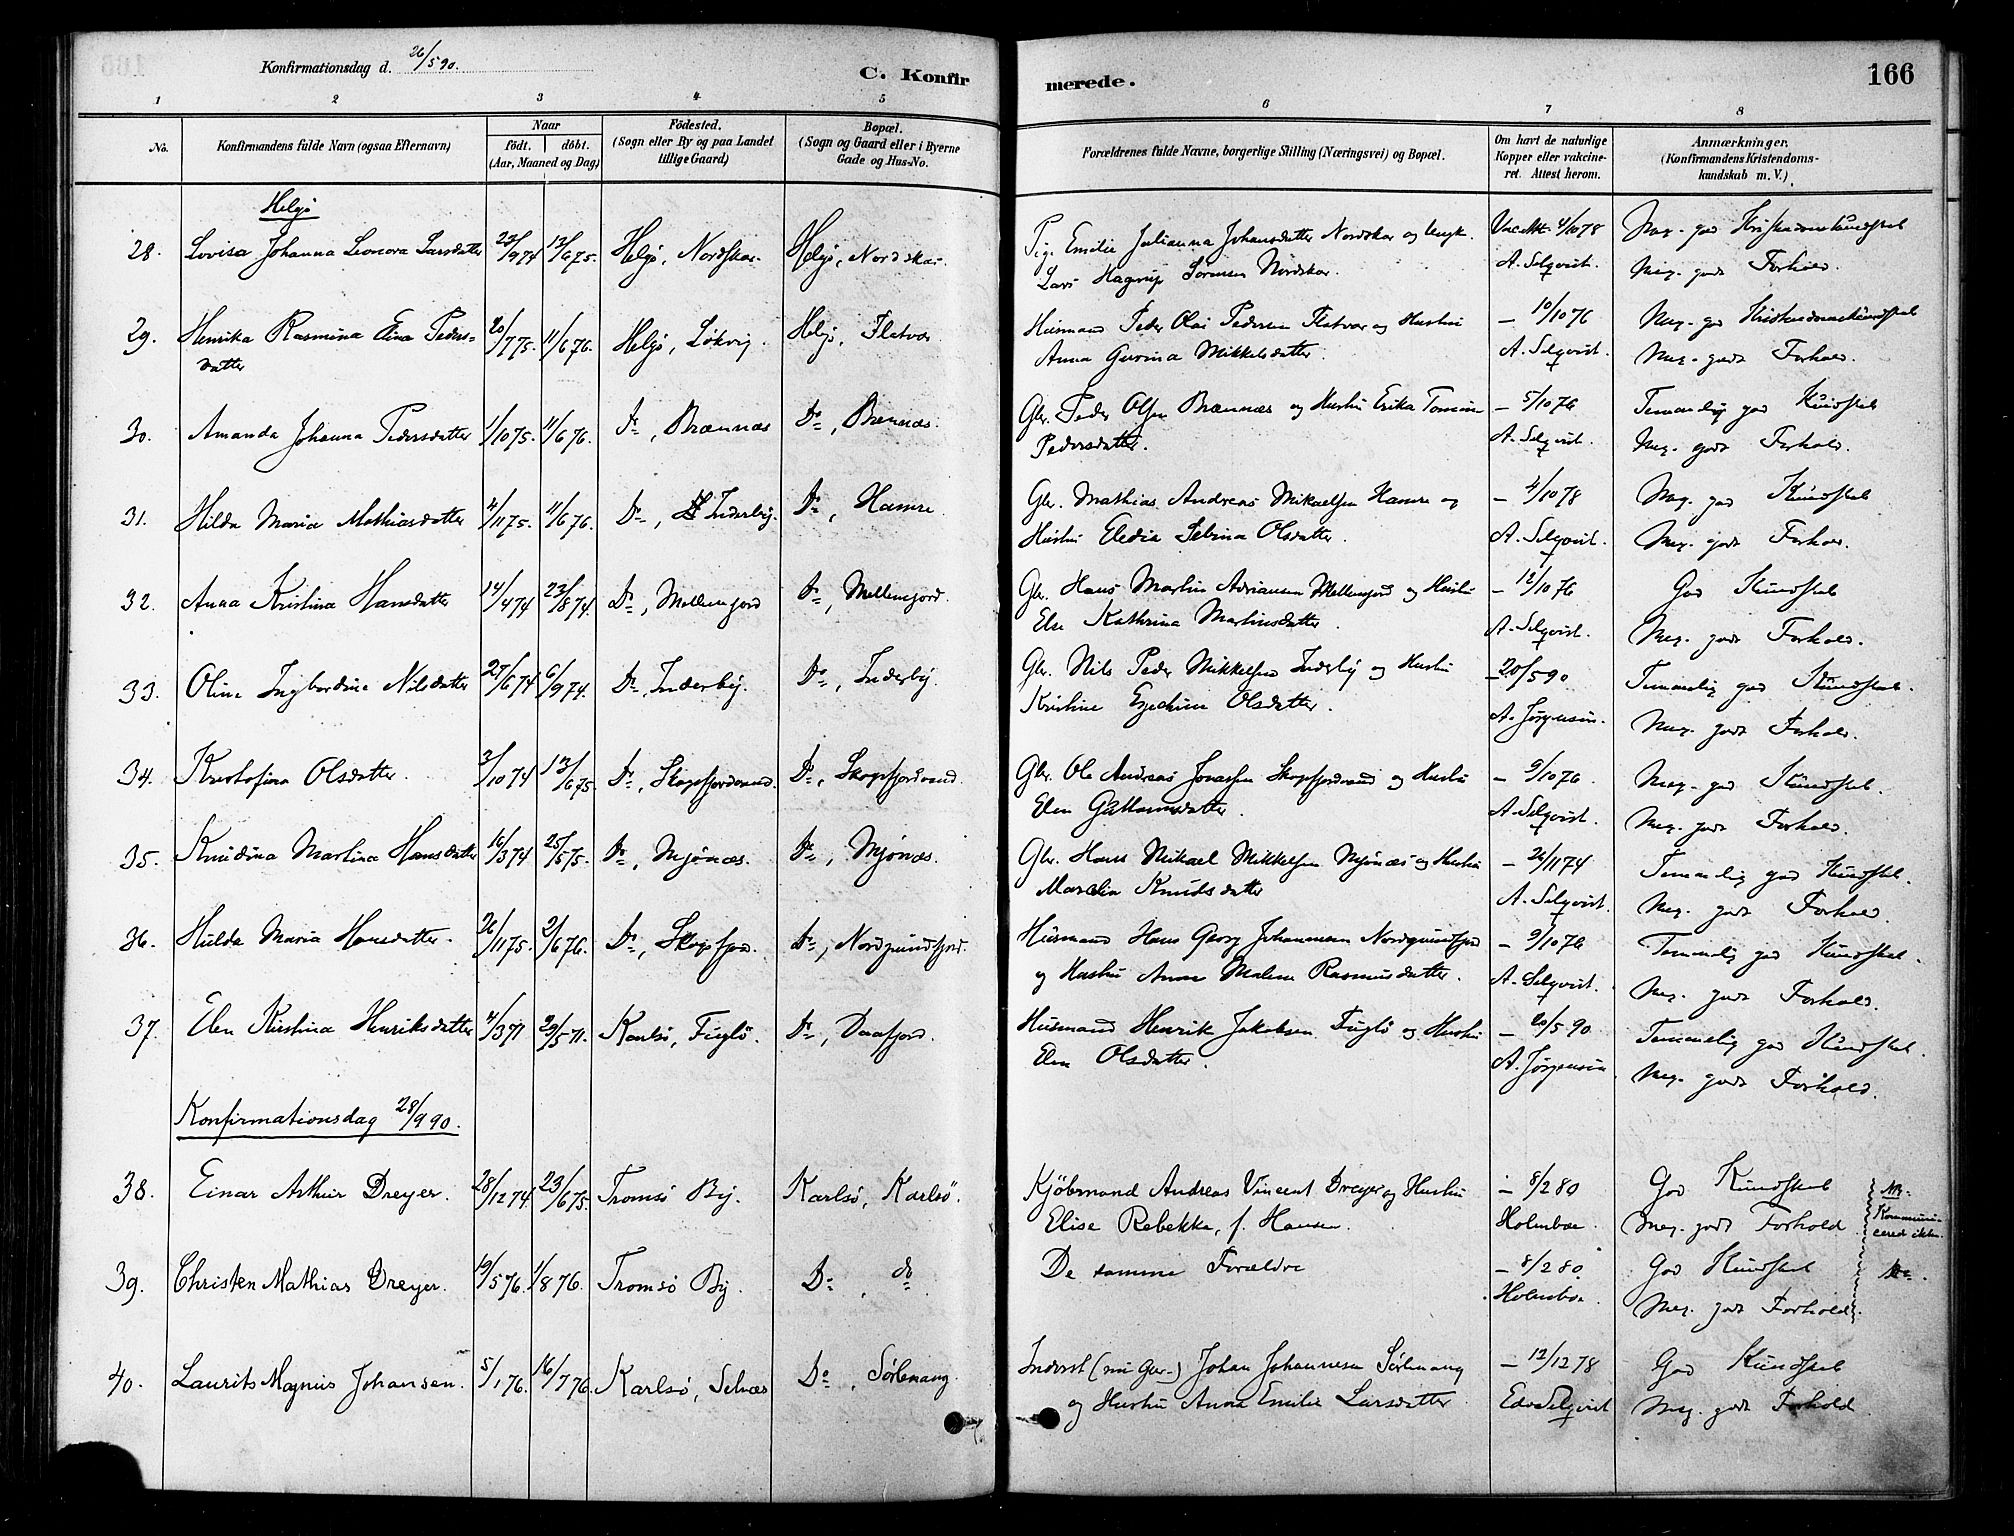 Konfirmationsdag d. 26/5 90.
C. Konfirmerede.
166
1 2 3 4 5 6 7 8
No.
Konfirmandens fulde Navn (ogsaa Efternavn)
Naar
födt. döbt.
(Aar, Maaned og Dag)
Födested.
(Sogn eller By og paa Landet
tillige Gaard)
Bopæl.
(Sogn og Gaard eller i Byerne
Gade og Hus-No.
Forældrenes fulde Navne, borgerlige Stilling (Næringsvei) og Bopæl.
Om havt de naturlige
Kopper eller vakcine-
ret. Attest herom.
Anmærkninger.
(Konfirmandens Kristendoms-
kundskab m. V.)
Helgö
28. Lovisa Johanna Leonora Larsdatter 23/9 74 13/6 75. Helgö, Nordskar. Helgö, Nordskar. Pig. Emilie Julianna Johansdatter Nordskar og Ungk. Vac.Att. 4/10 78 Meg. god Kristendomskundskab
Lars Hagrup Sörensen Nordskar. A. Selqvist. Meg. godt Forhold.
29. Henrika Rasmina Elina Peders- 20/7 75. 11/6 76. Helgö, Lökvig. Helgö, Flatvær Husmand Peder Olai Pedersen Flatvær og Hustru — 10/10 76 Meg. god Kristendomskundskab
datter Anna Gurina Mikkelsdatter. A. Selqvist. Meg. godt Forhold.
30. Amanda Johanna Pedersdatter 1/10 75. 11/6 76. Do, Brænnæs Do, Brænnæs. Gbr. Peder Olsen Brænnæs og Hustru Erika Tomine — 5/10 76 Temmelig god Kundskab
Pedersdatter. A. Selqvist. Meg. godt Forhold.
31. Hilda Maria Mathiasdatter 4/11 75. 11/6 76. Do, Inderby. Do, Hamre. Gbr. Mathias Andreas Mikaelsen Hamre og — 4/10 78 Meg. god Kundskab
Hustru Eledia Sebrina Olsdatter. A. Selqvist. Meg. godt Forhold.
32. Anna Kristina Hansdatter 14/4 74 23/8 74. Do, Mellemjord Do, Mellemjord. Gbr. Hans Martin Adriansen Mellemjord og Hustru — 12/10 76 God Kundskab
Else Kathrina Martinusdatter. A. Selqvist. Meg. godt Forhold.
33. Oline Ingbordine Nilsdatter 27/6 74 6/9 74. Do, Inderby. Do, Inderby. Gbr. Nils Peder Mikkelsen Inderby og Hustru — 20/5 90 Temmelig god Kundskab.
Kristine Olsdatter. A. Jörgensen. Meg. godt Forhold.
34. Kristofina Olsdatter. 3/10 74 13/6 75. Do, Skogsfjordvand. Do, Skogsfjordvand. Gbr. Ole Andreas Jonassen Skogsfjordvand og Hustru — 9/10 76 Meg. god Kundskab.
Elen A. Selqvist. Meg. godt Forhold.
35. Knudina Martina Hansdatter 16/3 74 25/5 75. Do, Mjönæs. Do, Mjönæs. Gbr. Hans Mikael Mikkelsen Mjönæs og Hustru — 26/11 74 Temmelig god Kundskab.
Marelia Knudsdatter A. Selqvist. Meg. godt Forhold.
36. Hulda Maria Hansdatter. 26/11 75. 2/6 76. Do, Skogsfjord. Do, Nordgrundfjord. Husmand Hans Georg Johannesen Nordgrundfjord — 9/10 76 Temmelig god Kundskab.
og Hustru Anne Malene Rasmusdatter. A. Selqvist. Meg. godt Forhold.
37. Elen Kirstina Henriksdatter 4/3 71 29/5 71. Karlsö, Fuglö. Do, Daafjord. Husmand Henrik Jakobsen Fuglö og Hustru — 20/5 90. Temmelig god Kundskab.
Elen Olsdatter. A. Jörgensen. Meg. godt Forhold.
Konfirmationsdag 28/9 90.
38. Einar Arthur Dreyer. 28/12 74. 23/6 75. Tromsö By. Karlsö, Karlsö. Kjöbmand Andreas Vincent Dreyer og Hustru — 8/2 80 God Kundskab NB.
Elise Rebekka, f. Hansen. Holmboe. Meg. godt Forhold Kommuni-
cered ikke.
39. Christen Mathias Dreyer. 19/5 76. 1/8 76. Tromsö By. Do, do De samme Forældre — 8/2 80. God Kundskab
Holmboe. Meg. godt Forhold.
40. Laurits Magnus Johansen. 5/1 76. 16/7 76. Karlsö, Selnæs Do, Sörlenang. Inderst (nu Gbr.) Johan Johannesen Sörlenang — 12/12 78 God Kundskab
og Hustru Anna Emilie Larsdatter Edv. Selqvist Meg. godt Forhold